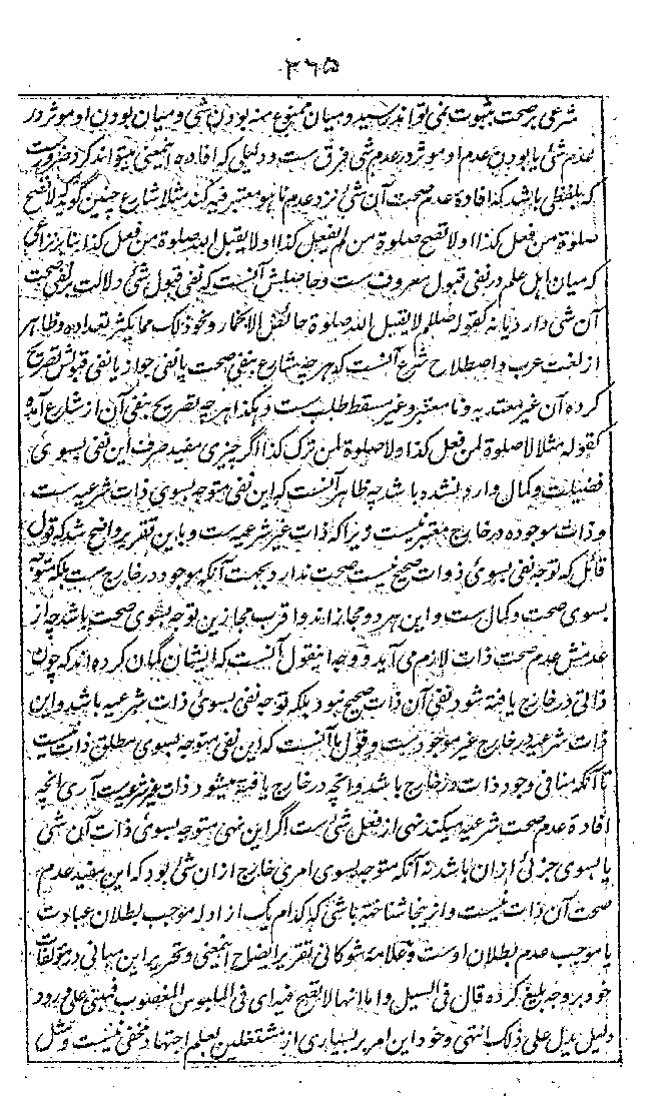 ۳۶۵
شرعی بر صحت بثبوت نمی تواند رسید و میان ممنوع منه بودن شی و میان بودن او موثر در
عدم شی یا بودن عدم او موثر در عدم شی فرق ست و دلیلی که افاده اینمعنی میتواند کرد ضرورست
که بلفظی باشد که افادهٔ عدم صحت آن شی نزد عدم ما هو معتبر فیه کند مثلا شارع چنین گوید لا تصح
صلوة من فعل کذا او لا تصح صلوة من لم یفعل کذا او لا یقبل الله صلوة من فعل کذا بنابر نزاعی
که میان اهل علم در نفی قبول معروف ست و حاصلش آنست که نفی قبول شی دلالت بر نفی صحت
آن شی دارد یا نه کقوله صللم لا یقبل الله صلوة حائض الا بخمار و نحو ذلک مما یکثر تعداده و ظاهر
از لغت عرب و اصطلاح شرع آنست که هر چه شارع بنفی صحت یا نفی جواز یا نفی قبولش تصریح
کرده آن غیر معتد به و نا معتبر و غیر مسقط طلب ست و هکذا هر چه تصریح بنفی آن از شارع آمده
کقوله مثلا لا صلوة لمن فعل کذا و لا صلوة لمن ترک کذا اگر چیزی مفید صرف این نفی بسوی
فضیلت و کمال وارد نشده باشد چه ظاهر آنست که این نفی متوجه بسوی ذات شرعیه ست
و ذات موجوده در خارج معتبر نیست زیرا که ذات غیر شرعیه ست و باین تقریر واضح شد که قول
قائل که توجه نفی بسوی ذوات صحیح نیست صحت ندارد بجهت آنکه موجود در خارج ست بلکه متوجه
بسوی صحت و کمال ست و این هر دو مجاز اند و اقرب مجازین توجه بسوی صحت باشد چه از
عدمش عدم صحت ذات لازم می آید و وجه اینقول آنست که ایشان گمان کرده اند که چون
ذاتی در خارج یافته شود نفی آن ذات صحیح نبود بلکه توجه نفی بسوی ذات شرعیه باشد و این
ذات شرعیه در خارج غیر موجود ست و قول ما آنست که این نفی متوجه بسوی مطلق ذات نیست
تا آنکه منافی وجود ذات در خارج باشد و آنچه در خارج یافته میشود ذات غیر شرعیست آری آنچه
افادهٔ عدم صحت شرعیه میکند نهی از فعل شی ست اگر این نهی متوجه بسوی ذات آن شی
یا بسوی جزئی ازان باشد نه آنکه متوجه بسوی امری خارج ازان شی بود که این مفید عدم
صحت آن ذات نیست و ازینجا شناخته باشی که کدام یک از ادله موجب بطلان عبادت
یا موجب عدم بطلان اوست و علامه شوکانی تقریر ایضاح اینمعنی و تحریر این مبانی در مؤلفات
خود بر وجه بلیغ کرده قال فی السیل و اما انها لا تصح فیه ای فی الملبوس المغصوب فمبنی علی ورود
دلیل یدل علی ذلک انتهی و خود این امر بر بسیاری از مشتغلین بعلم اجتهاد مخفی نیست و مثل